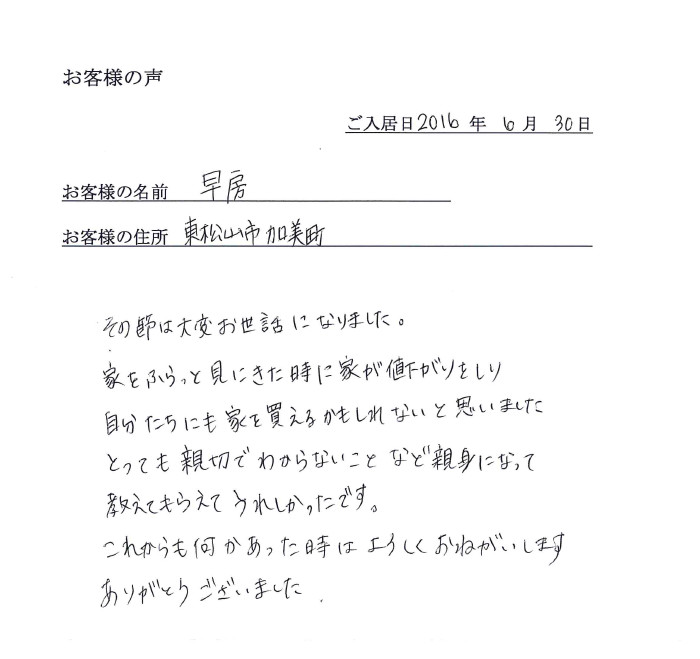 お客様の声
ご入居日2016年 6月 30日
お客様の名前 早房
お客様の住所 東松山市加美町
その節は大変お世話になりました。
家をふらっと見にきた時に家が値下がりをしり
自分たちにも家を買えるかもしれないと思いました
とっても親切でわからないことなど親身になって
教えてもらえてうれしかったです。
これからも何かあった時はよろしくおねがいします
ありがとうございました.